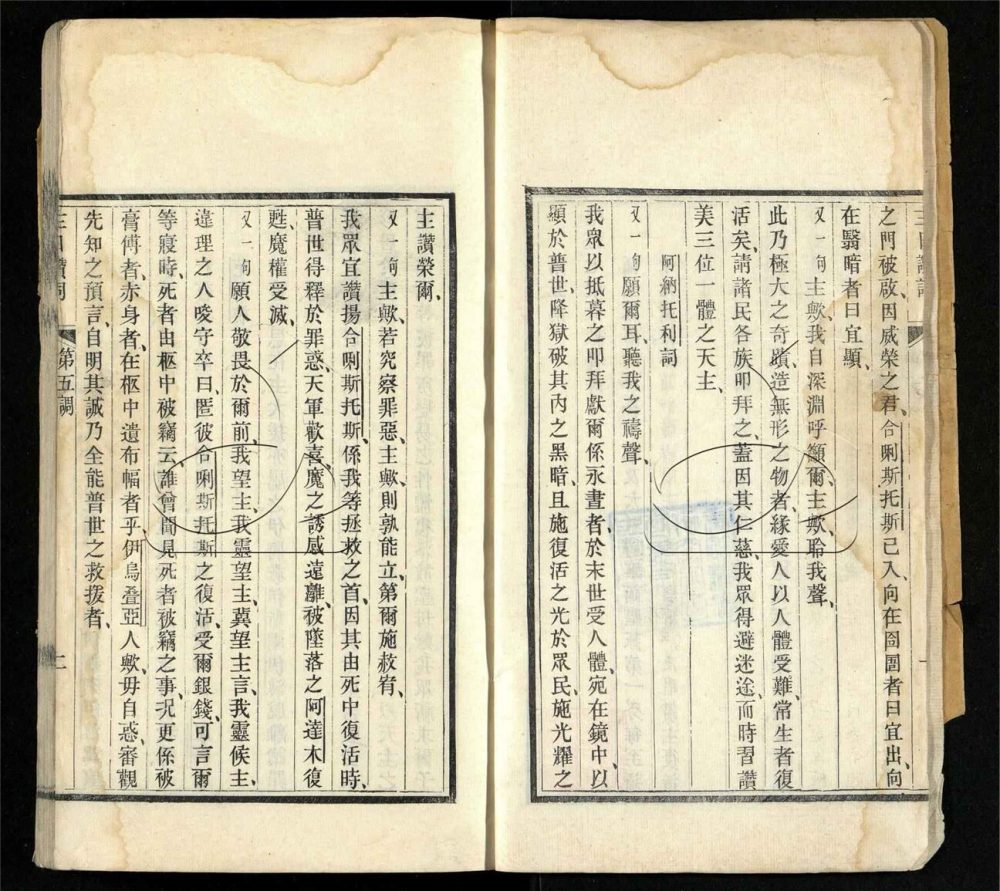 之門被啟、因威榮之君、合唎斯托斯已入、向在囹圄者曰宜出、向
在翳暗者曰宜顯、
又一句主歟、我自深淵呼籲爾、主歟、聆我聲、
此乃極大之奇蹟、造無形之物者、緣愛人以人體受難、常生者復
活矣、請諸民各族叩拜之、蓋因其仁慈、我眾得避迷途、而時習讚
美三位一體之天主、
阿納托利詞
又一句願爾耳、聽我之禱聲、
我眾以抵暮之叩拜獻爾、係永晝者、於末世受人體、宛在鏡中、以
顯於普世、降獄破其內之黑暗、且施復活之光於眾民、施光耀之
主讚榮爾、
又一句主歟、若究察罪惡、主歟、則孰能立、第爾施赦宥、
我眾宜讚揚合唎斯托斯、係我等拯救之首、因其由死中復活時、
普世得釋於罪惑、天軍歡喜、魔之誘惑遠離、被墜落之阿達木復
甦、魔權受滅、
又一句願人敬畏於爾前、我望主、我靈望主、冀望主言、我靈候主、
違理之人唆守卒曰、匿彼合唎斯托斯之復活、受爾銀錢、可言爾
等寢時、死者由柩中被竊云、誰曾聞見死者被竊之事、況更係被
膏傅者、赤身者、在柩中遺布幅者乎、伊烏叠亞人歟、毋自惑、審觀
先知之預言、自明其誠乃全能普世之救援者、
主日讚詞 第五調